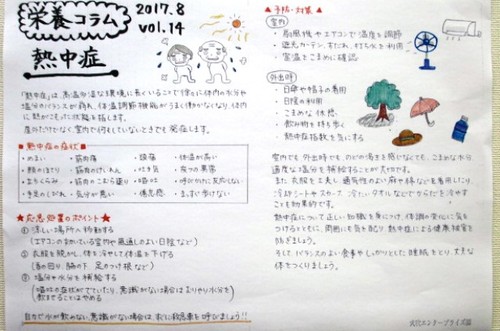 栄養コラム
2017.8
vol.14
熱中症
「熱中症」は、高温多湿な環境に長くいることで徐々に体内の水分や
塩分のバランスが崩れ、体温調節機能がうまく働かなくなり、体内
に熱がこもった状態を指します。
屋外だけでなく室内で何もしていないときでも発症します。
■熱中症の症状■
・めまい ・筋肉痛 ・頭痛 ・体温が高い
・顔のほてり ・筋肉のけいれん ・吐き気 ・皮フの異常
・立ちくらみ ・筋肉のこむら返り ・嘔吐 ・呼びかけに反応しない
・手足のしびれ ・気分が悪い ・倦怠感 ・まっすぐ歩けない
★応急処置のポイント★
① 涼しい場所へ移動する
(エアコンのきいている室内や風通しのよい日陰など)
② 衣服を脱がし、体を冷やして体温を下げる
(首の回り、脇の下、足のつけ根など)
③ 塩分や水分を補給する
(嘔吐の症状がでていたり、意識がない場合はむりやり水分を
飲ませることはやめる)
自力で水が飲めない、意識がない場合は、すぐに救急車を呼びましょう!!
▲予防・対策▲
室内
・扇風機やエアコンで温度を調節
・遮光カーテン、すだれ、打ち水を利用
・室温をこまめに確認
外出時
・日傘や帽子の着用
・日陰の利用
・こまめな休憩
・飲み物を持ち歩く
・熱中症指数を気にする
室内でも外出時でも、のどの渇きを感じなくても、こまめな水分
適度な塩分を補給することが大切です。
また、衣服を工夫し、通気性のよい麻や綿などを着用したり、
冷却シートやスカーフ、冷たいタオルなどでからだを冷やす
ことも効果的です。
熱中症について正しい知識を身につけ、体調の変化に気を
つけるとともに、周囲にも気を配り、熱中症による健康被害を
防ぎましょう。
そして、バランスのよい食事やしっかりとした睡眠をとり、丈夫な
体をつくりましょう。